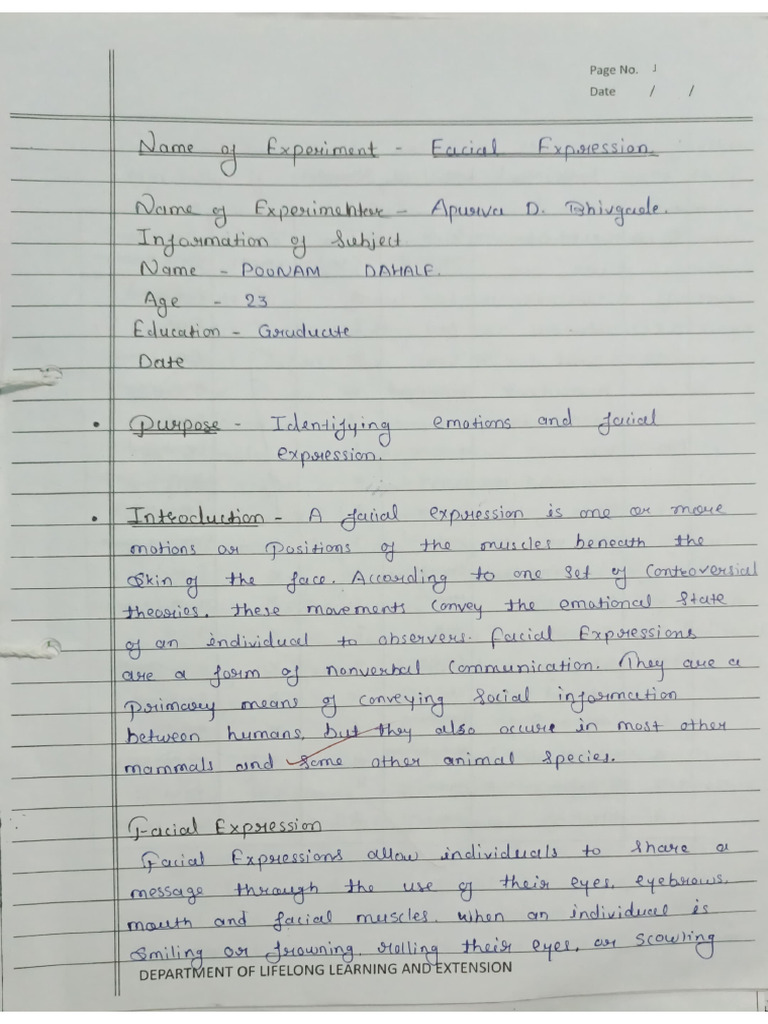 Page No. 1
Date / /
Name of Experiment - Facial Expression
Name of Experimentor - Apurva D. Bhivgade.
Information of Subject
Name - POONAM DAHALE.
Age - 23
Education - Graduate
Date
• Purpose - Identifying emotions and facial
expression.
• Introduction - A facial expression is one or more
motions or positions of the muscles beneath the
skin of the face. According to one set of controversial
theories, these movements convey the emotional state
of an individual to observers. Facial Expressions
are a form of nonverbal communication. They are a
primary means of conveying social information
between humans, but they also occure in most other
mammals and some other animal species.
Facial Expression
Facial Expressions allow individuals to share a
message through the use of their eyes, eyebrows,
mouth and facial muscles. when an individual is
smiling or frowning, rolling their eyes, or scowling
DEPARTMENT OF LIFELONG LEARNING AND EXTENSION